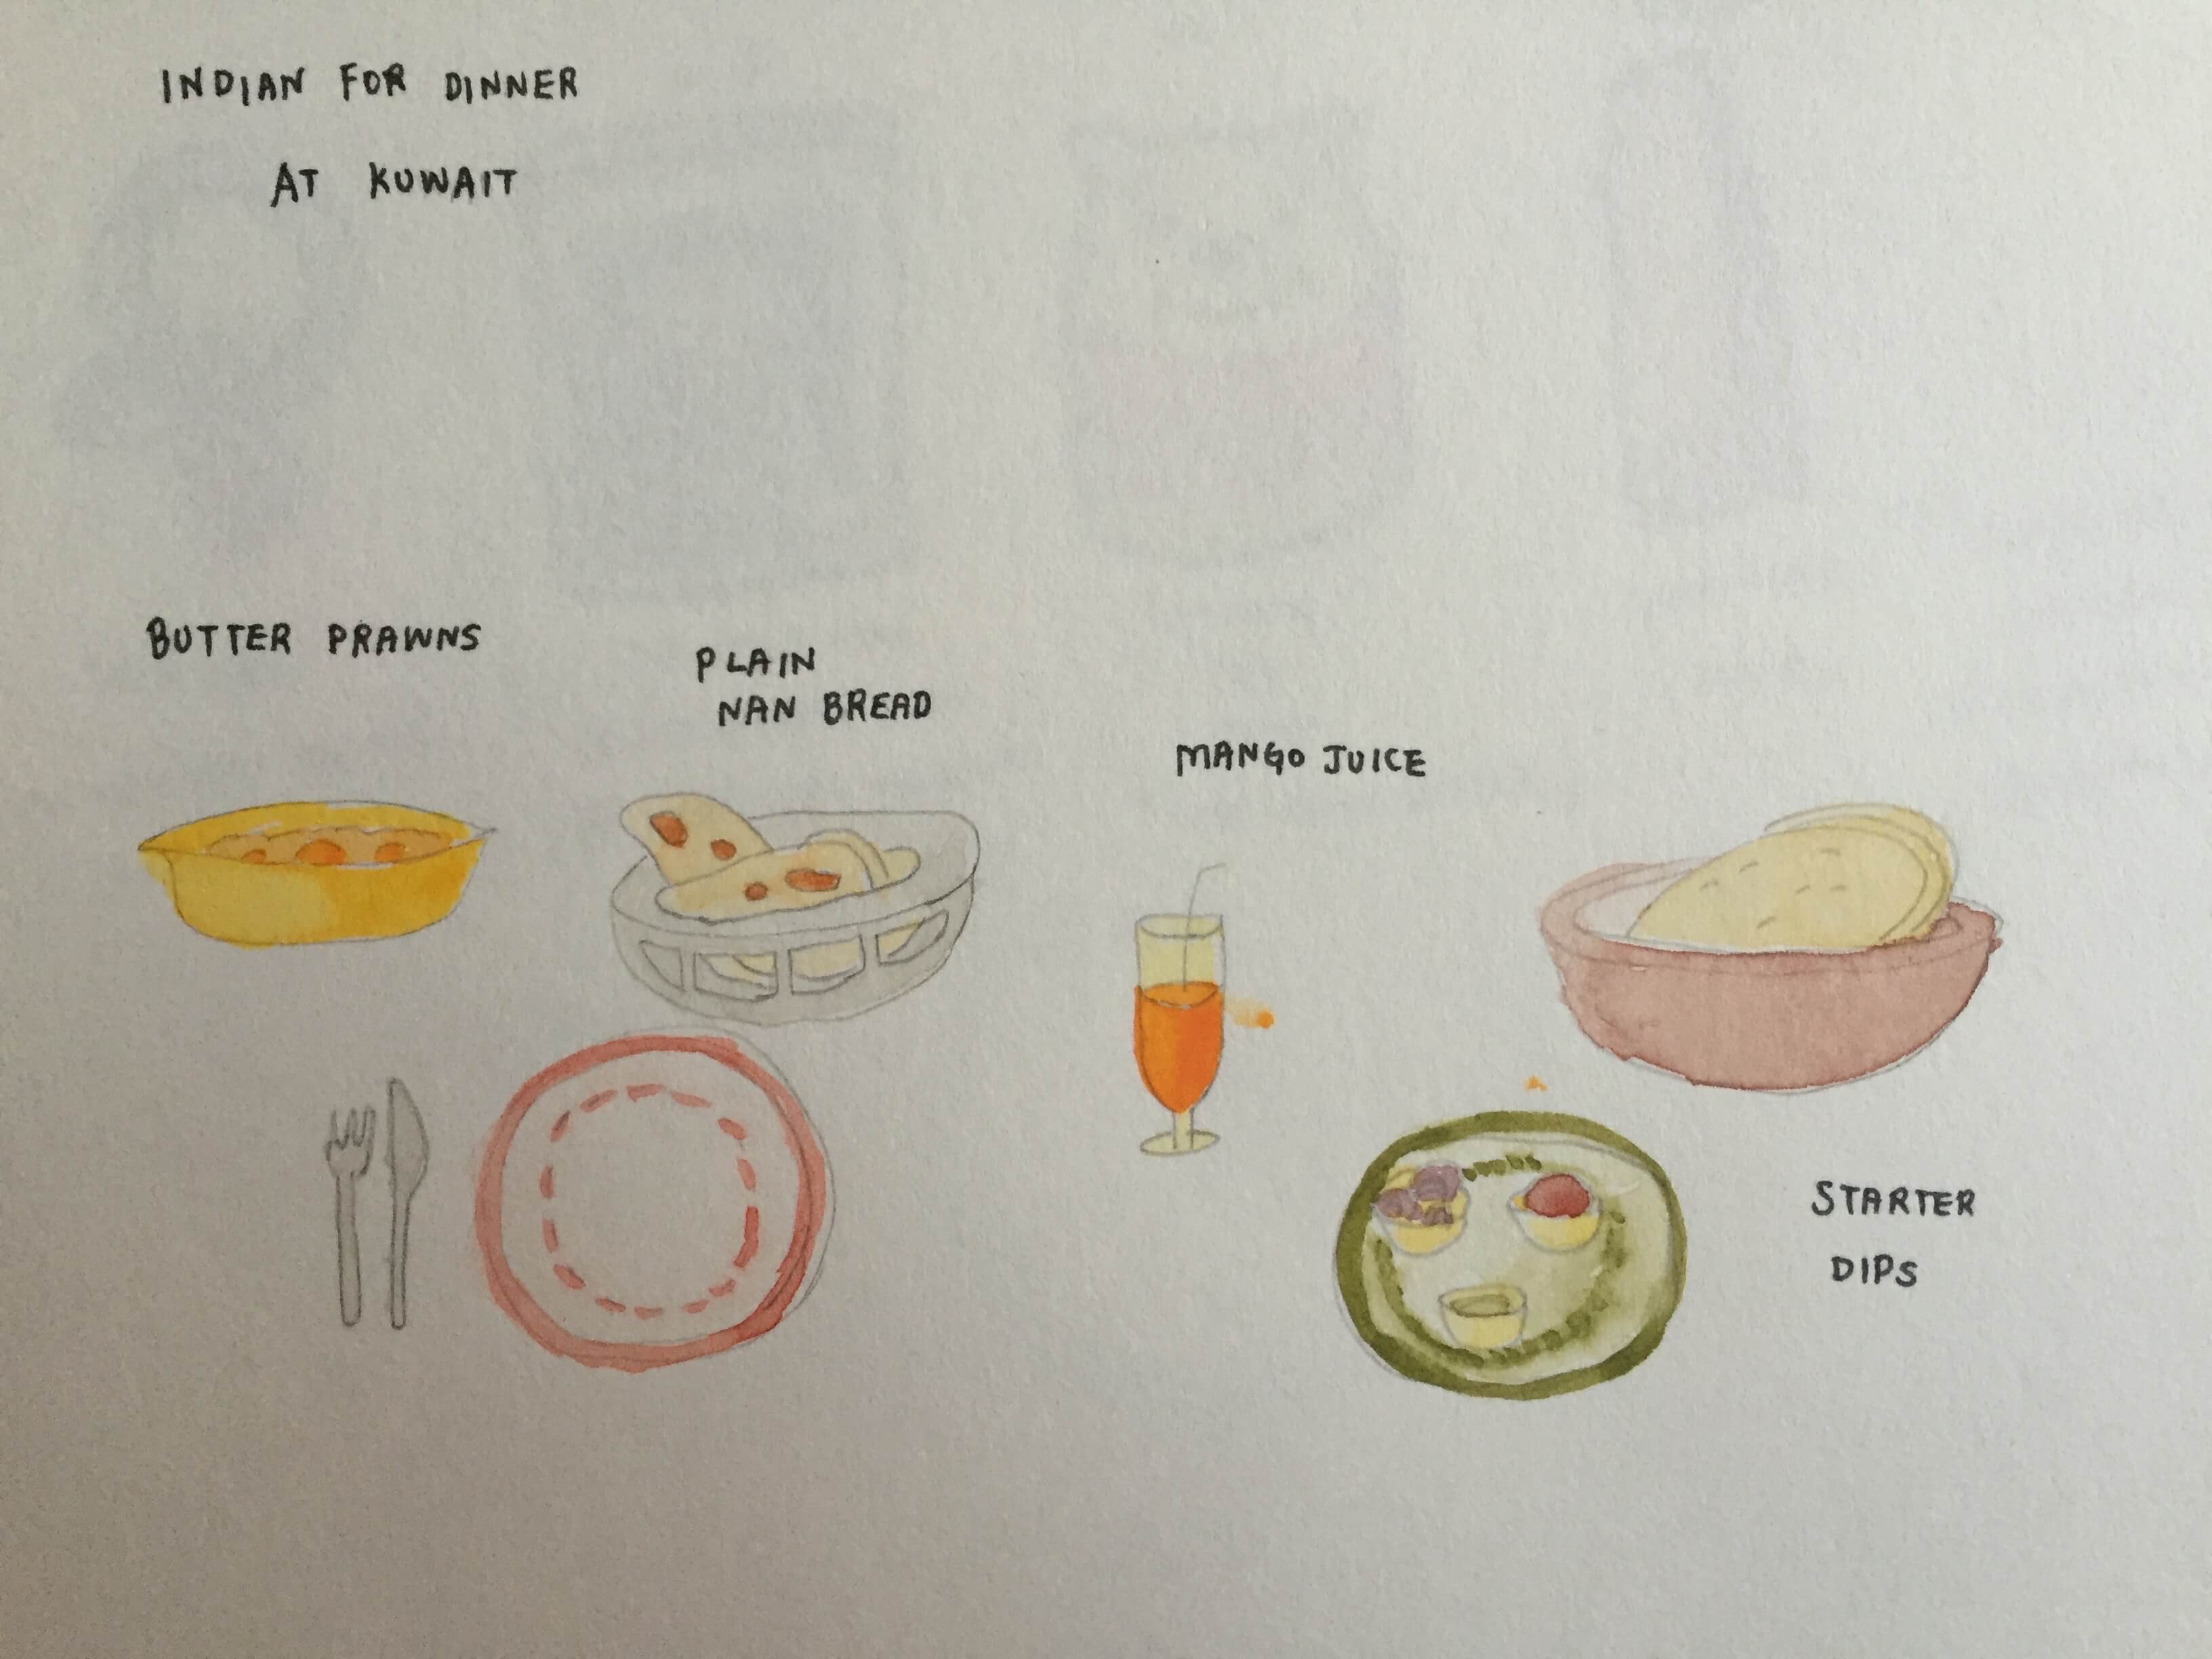 INDIAN FOR DINNER
AT KUWAIT
BUTTER PRAWNS
PLAIN
NAN BREAD
MANGO JUICE
STARTER
DIPS